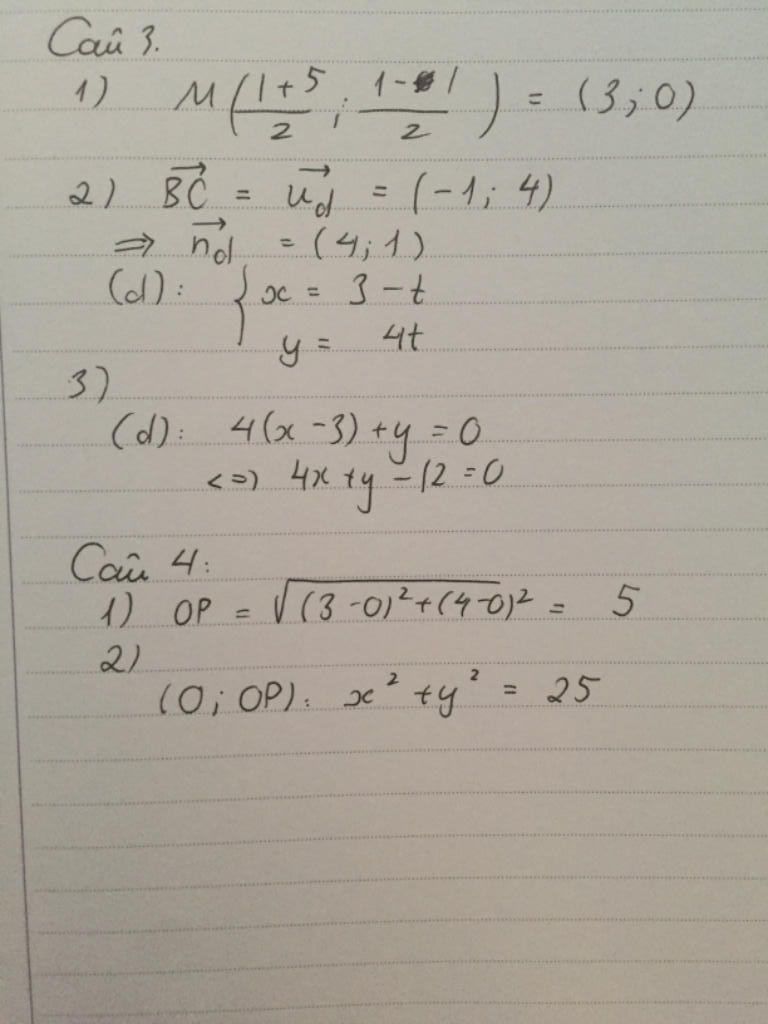 Câu 3.
1) M(1+5/2 ; 1-1/2) = (3;0)
2) \overrightarrow{BC} = \overrightarrow{u_d} = (-1; 4)
⇒ \overrightarrow{n_d} = (4;1)
(d): { x = 3 - t
y = 4t
3)
(d): 4(x - 3) + y = 0
<=> 4x + y - 12 = 0
Câu 4:
1) OP = √((3-0)² + (4-0)²) = 5
2)
(O; OP): x² + y² = 25